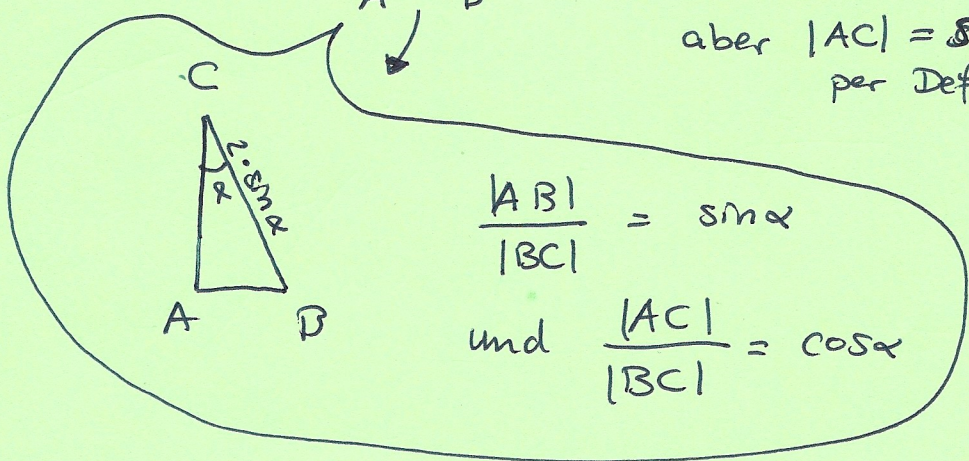 aber |AC| =
per Def
C
2·sinα
α
A B
|AB|
|BC|
= sinα
und |AC|
|BC|
= cosα